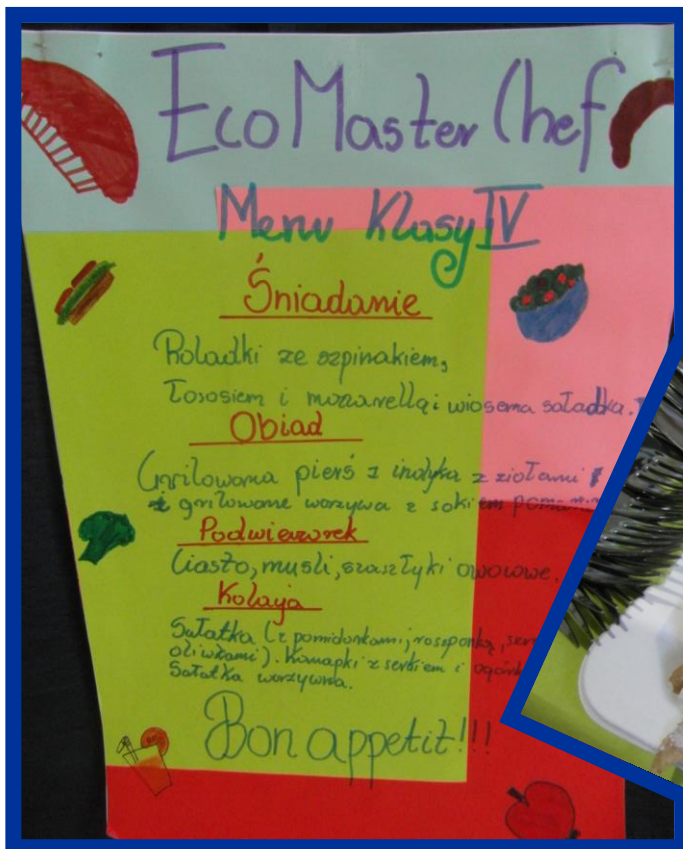 EcoMasterChef
Menu Klasy IV
Śniadanie
Roladki ze szpinakiem,
Łososiem i mozarellą i wiosenna sałatka.
Obiad
Grilowana pierś z indyka z ziołami
grilowane warzywa z sokiem
Podwieczorek
Ciasto, musli, szaszłyki owocowe.
Kolacja
Sałatka (z pomidorkami, roszponką,
oliwkami). Kanapki z serkiem i
Sałatka warzywna.
Bon appetit!!!